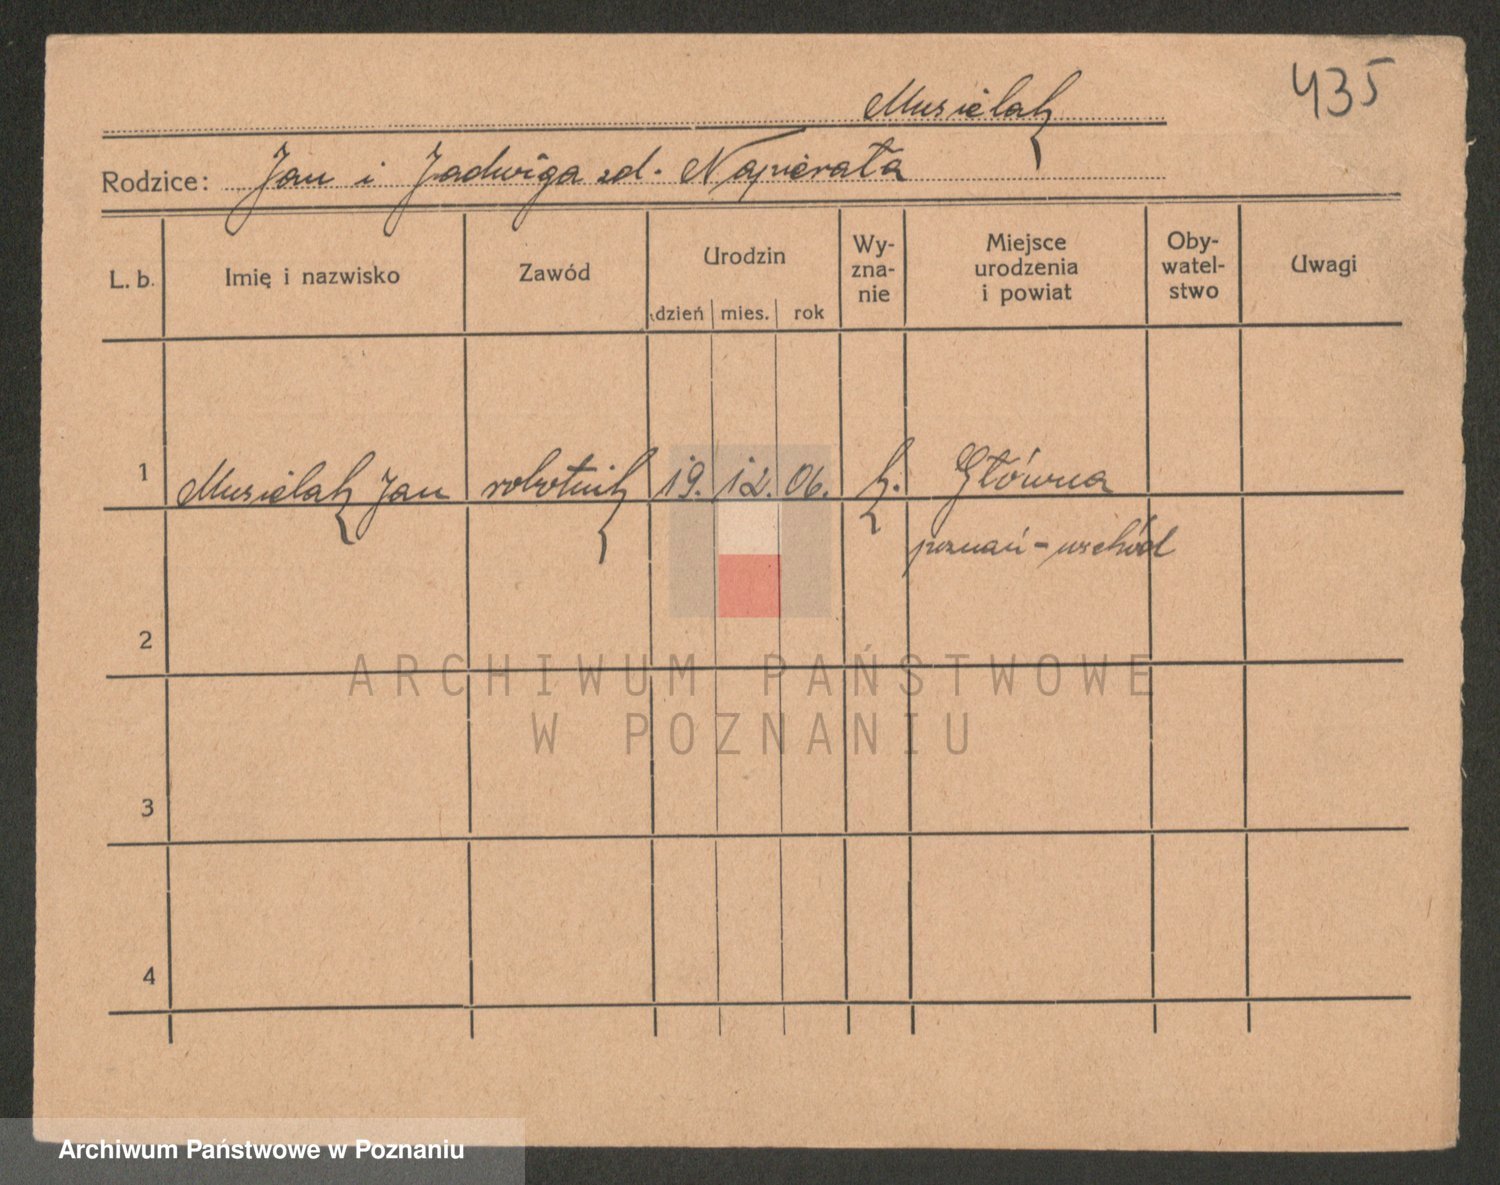 435
Musielak
Rodzice: Jan i Jadwiga zd. Napierała
L. b. Imię i nazwisko Zawód Urodzin Wy-zna-nie Miejsce urodzenia i powiat Oby-watel-stwo Uwagi
dzień mies. rok
1 Musielak Jan robotnik 19. 12. 06. k. Główna
poznań - wschód
2
3
4
ARCHIWUM PAŃSTWOWE
W POZNANIU
Archiwum Państwowe w Poznaniu